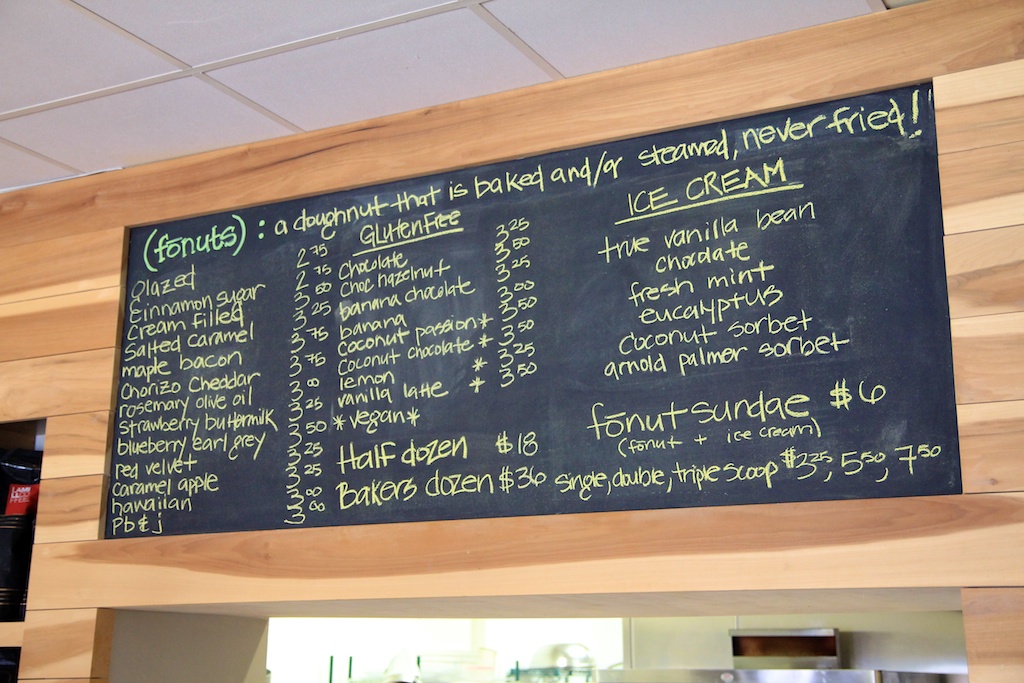 (fōnuts) : a doughnut that is baked and/or steamed, never fried!
Glazed 2 75
Cinnamon sugar 2 75
Cream filled 3 50
Salted caramel 3 25
maple bacon 3 75
Chorizo Cheddar 3 75
rosemary olive oil 3 00
strawberry buttermilk 3 25
blueberry earl grey 3 50
red velvet 3 25
caramel apple 3 25
hawaiian 3 00
Pb & j 3 00
Gluten Free
Chocolate 3 25
Choc hazelnut 3 50
banana chocolate 3 25
banana 3 00
coconut passion * 3 50
coconut chocolate * 3 50
lemon * 3 25
vanilla latte * 3 50
*vegan*
Half dozen $18
Bakers dozen $36
ICE CREAM
true vanilla bean
chocolate
fresh mint
eucalyptus
coconut sorbet
arnold palmer sorbet
fōnut sundae $6
(fōnut + ice cream)
single, double, triple scoop $3 25, 5 50, 7 50